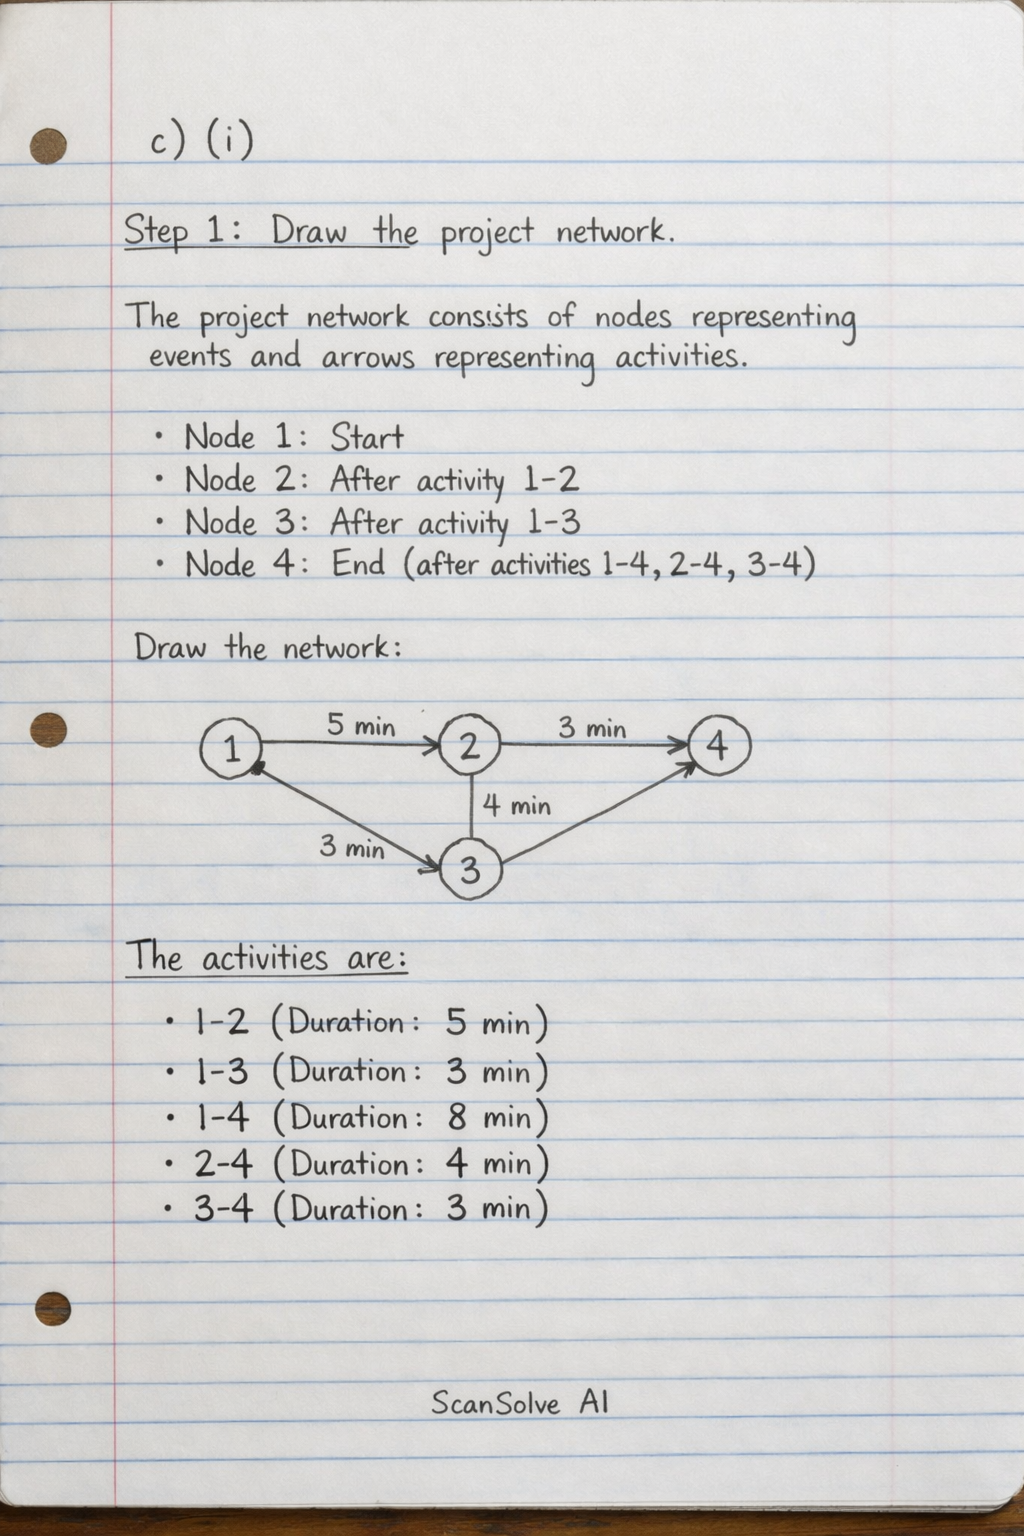 c) (i)
Step 1: Draw the project network.
The project network consists of nodes representing
events and arrows representing activities.
• Node 1: Start
• Node 2: After activity 1-2
• Node 3: After activity 1-3
• Node 4: End (after activities 1-4, 2-4, 3-4)
Draw the network:
5 min
3 min
1
2
4
4 min
3 min
3
The activities are:
• 1-2 (Duration: 5 min)
• 1-3 (Duration: 3 min)
• 1-4 (Duration: 8 min)
• 2-4 (Duration: 4 min)
• 3-4 (Duration: 3 min)
ScanSolve AI